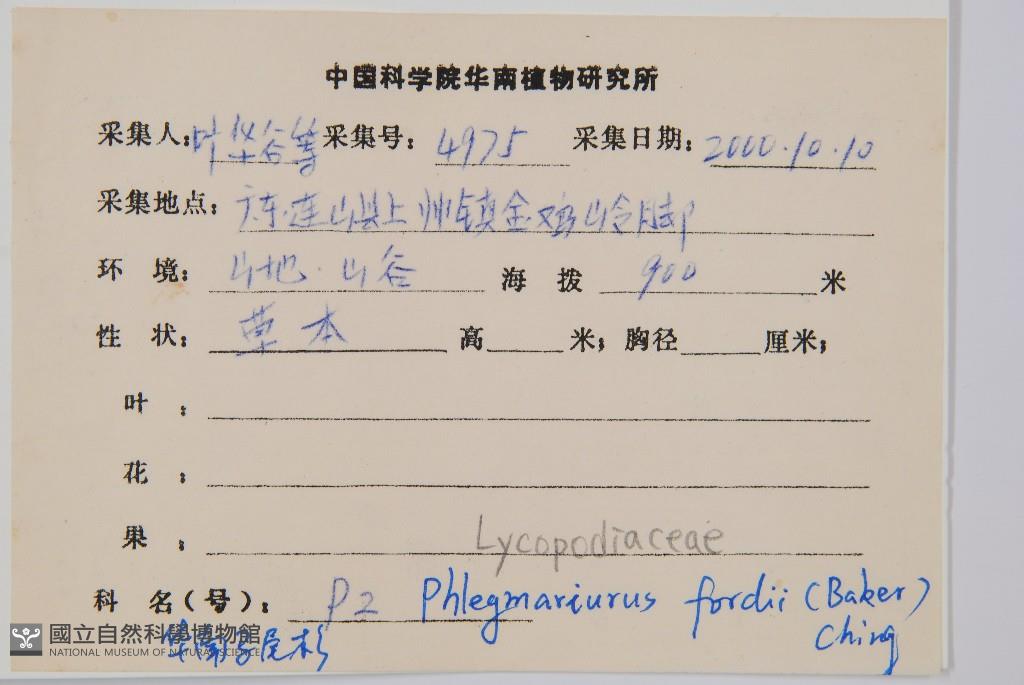 中国科学院华南植物研究所
采集人: 叶华谷等 采集号: 4975 采集日期: 2000.10.10
采集地点: 广东连山县上帅镇金鸡岭脚
环 境: 山地.山谷 海 拨 900 米
性 状: 草本 高 米; 胸径 厘米;
叶 :
花 :
果 :
Lycopodiaceae
科 名(号): P2 Phlegmariurus fordii (Baker) Ching
华南马尾杉
國立自然科學博物館
NATIONAL MUSEUM OF NATURAL SCIENCE